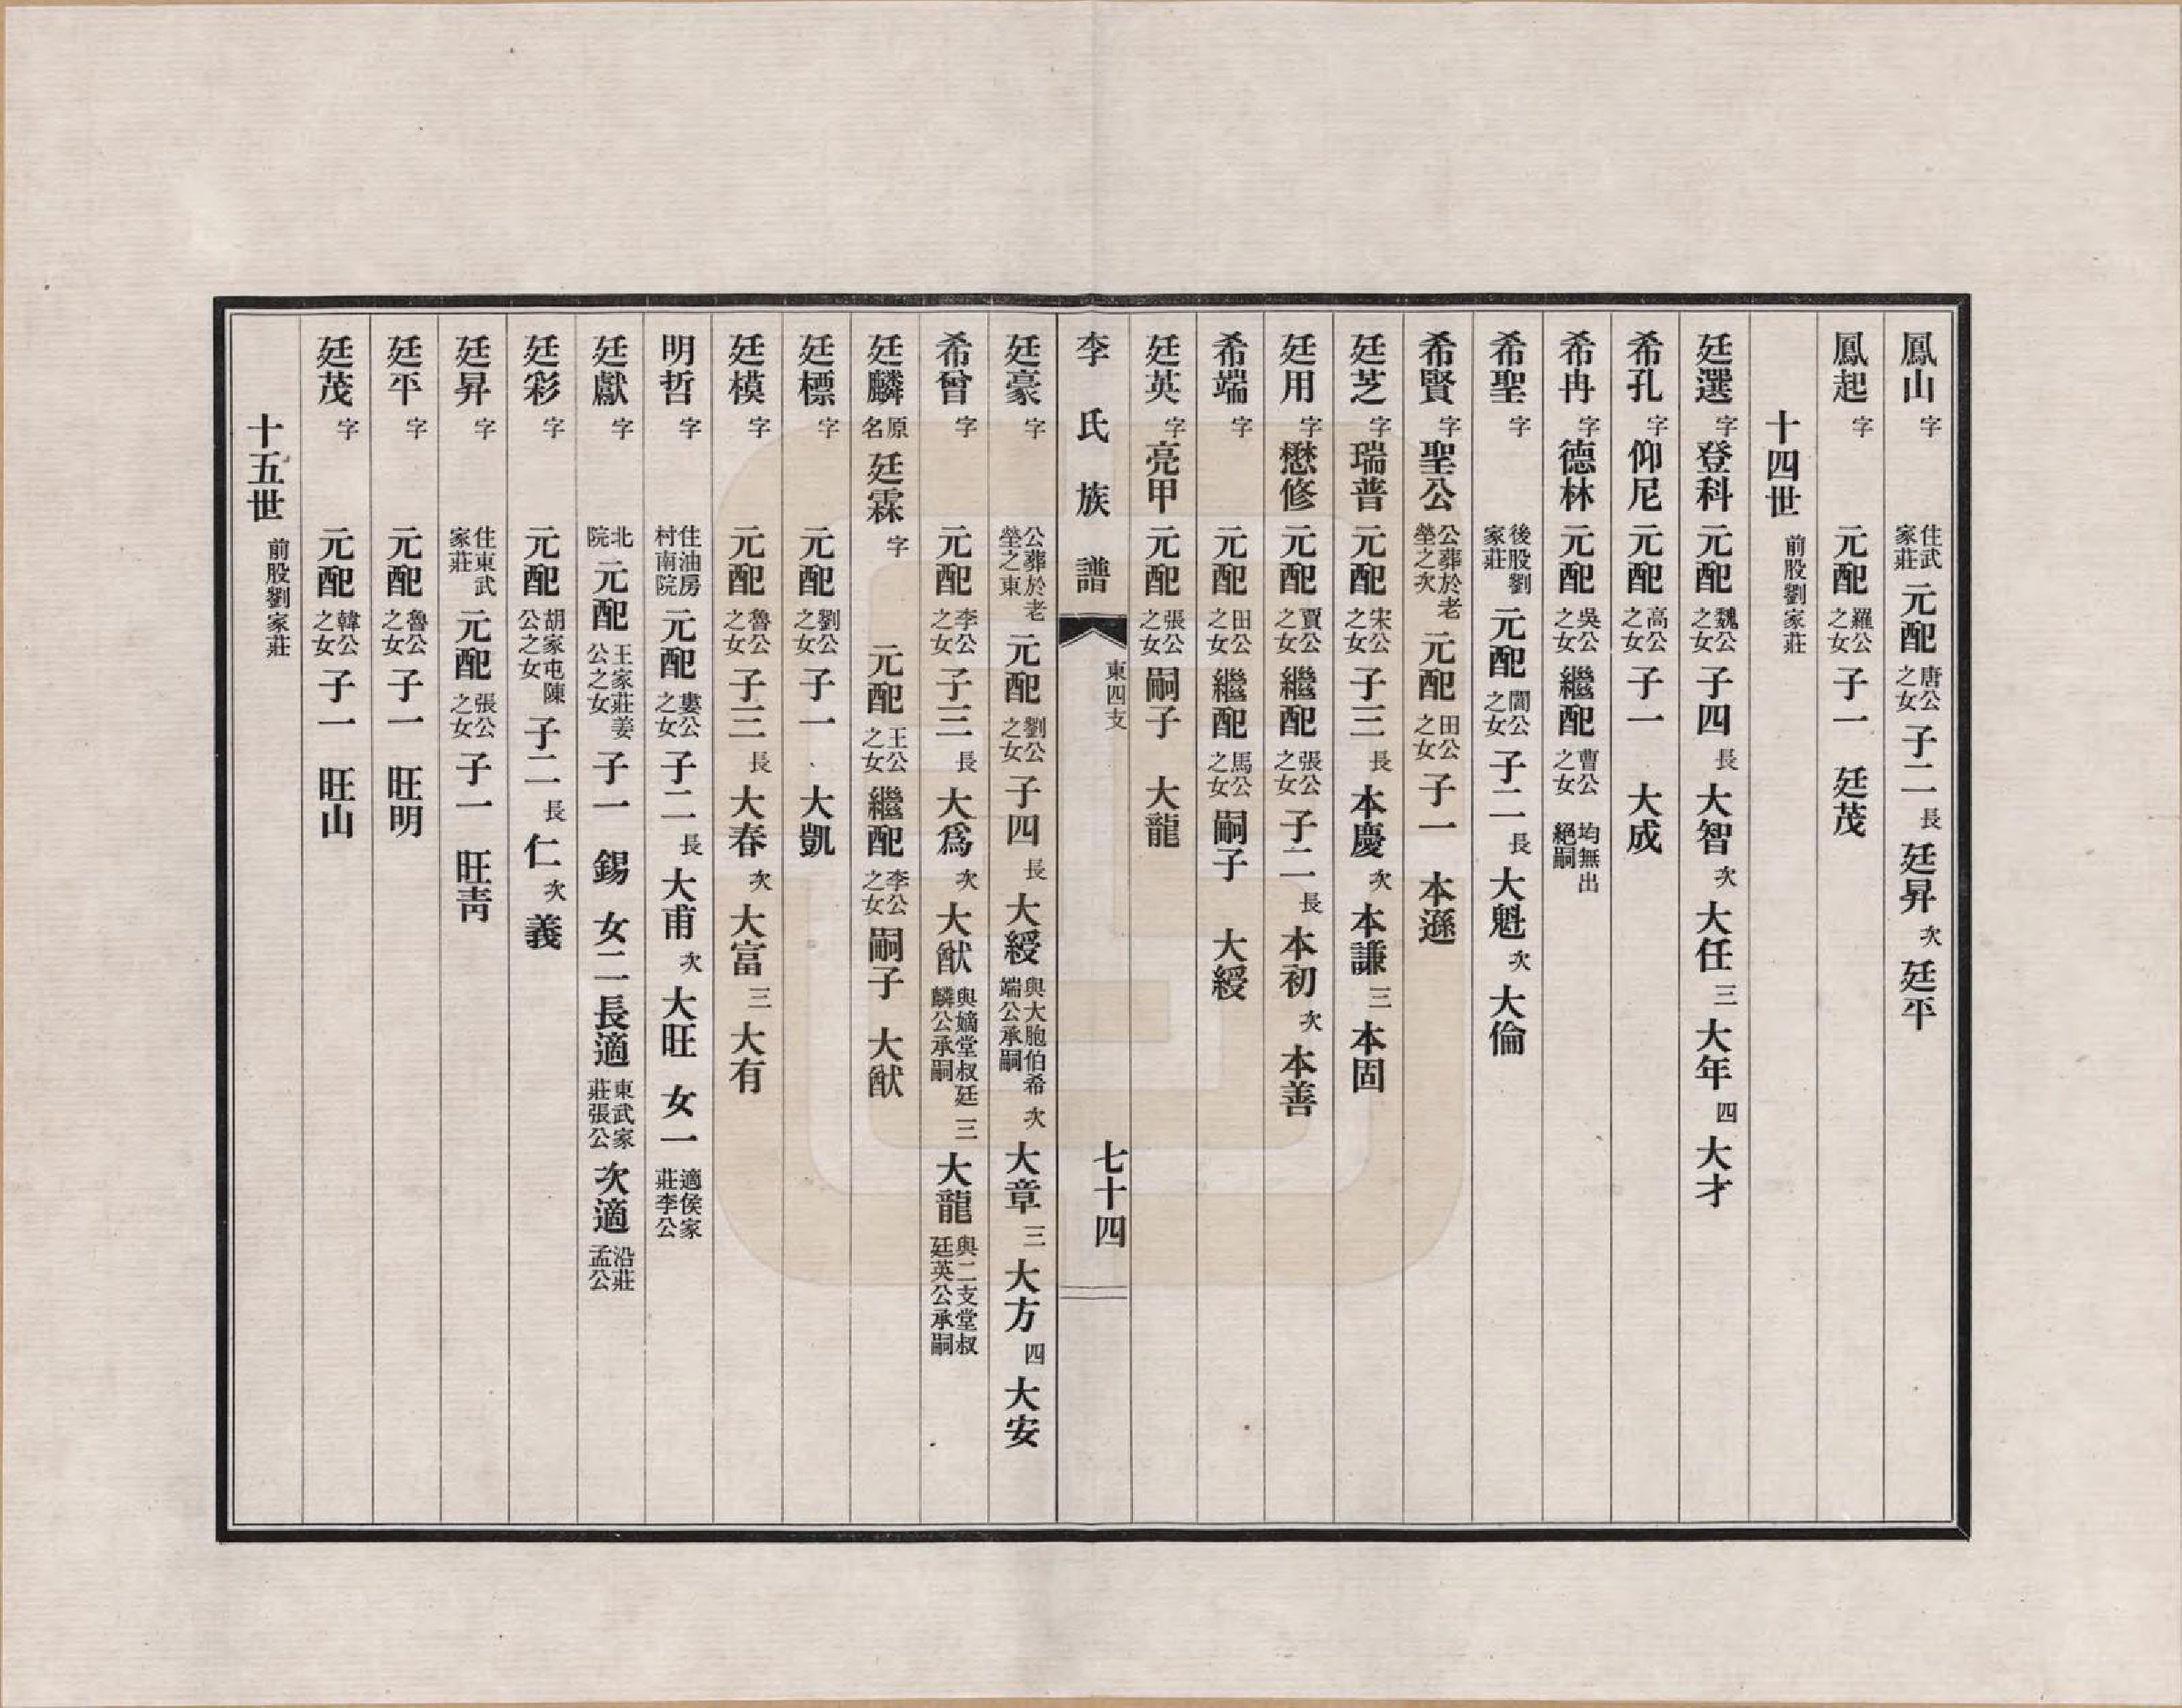 鳳山 字 住武家莊 元配 唐公之女 子二 長 廷昇 次 廷平
鳳起 字 元配 羅公之女 子一 廷茂
十四世 前股劉家莊
廷選 字 登科 元配 魏公之女 子四 長 大智 次 大任 三 大年 四 大才
希孔 字 仰尼 元配 高公之女 子一 大成
希冉 字 德林 元配 吳公之女 繼配 曹公之女 均無出絕嗣
希聖 字 後股劉家莊 元配 閻公之女 子二 長 大魁 次 大倫
希賢 字 聖公 公葬於老塋之次 元配 田公之女 子一 本遜
廷芝 字 瑞普 元配 宋公之女 子三 長 本慶 次 本謙 三 本固
廷用 字 懋修 元配 賈公之女 繼配 張公之女 子二 長 本初 次 本善
希端 字 元配 田公之女 繼配 馬公之女 嗣子 大綬
廷英 字 亮甲 元配 張公之女 嗣子 大龍
李氏族譜 東四支 七十四
廷豪 字 公葬於老塋之東 元配 劉公之女 子四 長 大綬 與大胞伯希端公承嗣 次 大章 三 大方 四 大安
希曾 字 元配 李公之女 子三 長 大爲 次 大猷 與嫡堂叔廷麟公承嗣 三 大龍 與二支堂叔廷英公承嗣
廷麟 原名 廷霖 字 元配 王公之女 繼配 李公之女 嗣子 大猷
廷標 字 元配 劉公之女 子一 大凱
廷模 字 元配 魯公之女 子三 長 大春 次 大富 三 大有
明哲 字 住油房村南院 元配 婁公之女 子二 長 大甫 次 大旺 女一 適侯家莊李公
廷獻 字 北院 元配 王家莊姜公之女 子一 錫 女二 長適 東武家莊張公 次適 沿莊孟公
廷彩 字 元配 胡家屯陳公之女 子二 長 仁 次 義
廷昇 字 住東武家莊 元配 張公之女 子一 旺靑
廷平 字 元配 魯公之女 子一 旺明
廷茂 字 元配 韓公之女 子一 旺山
十五世 前股劉家莊